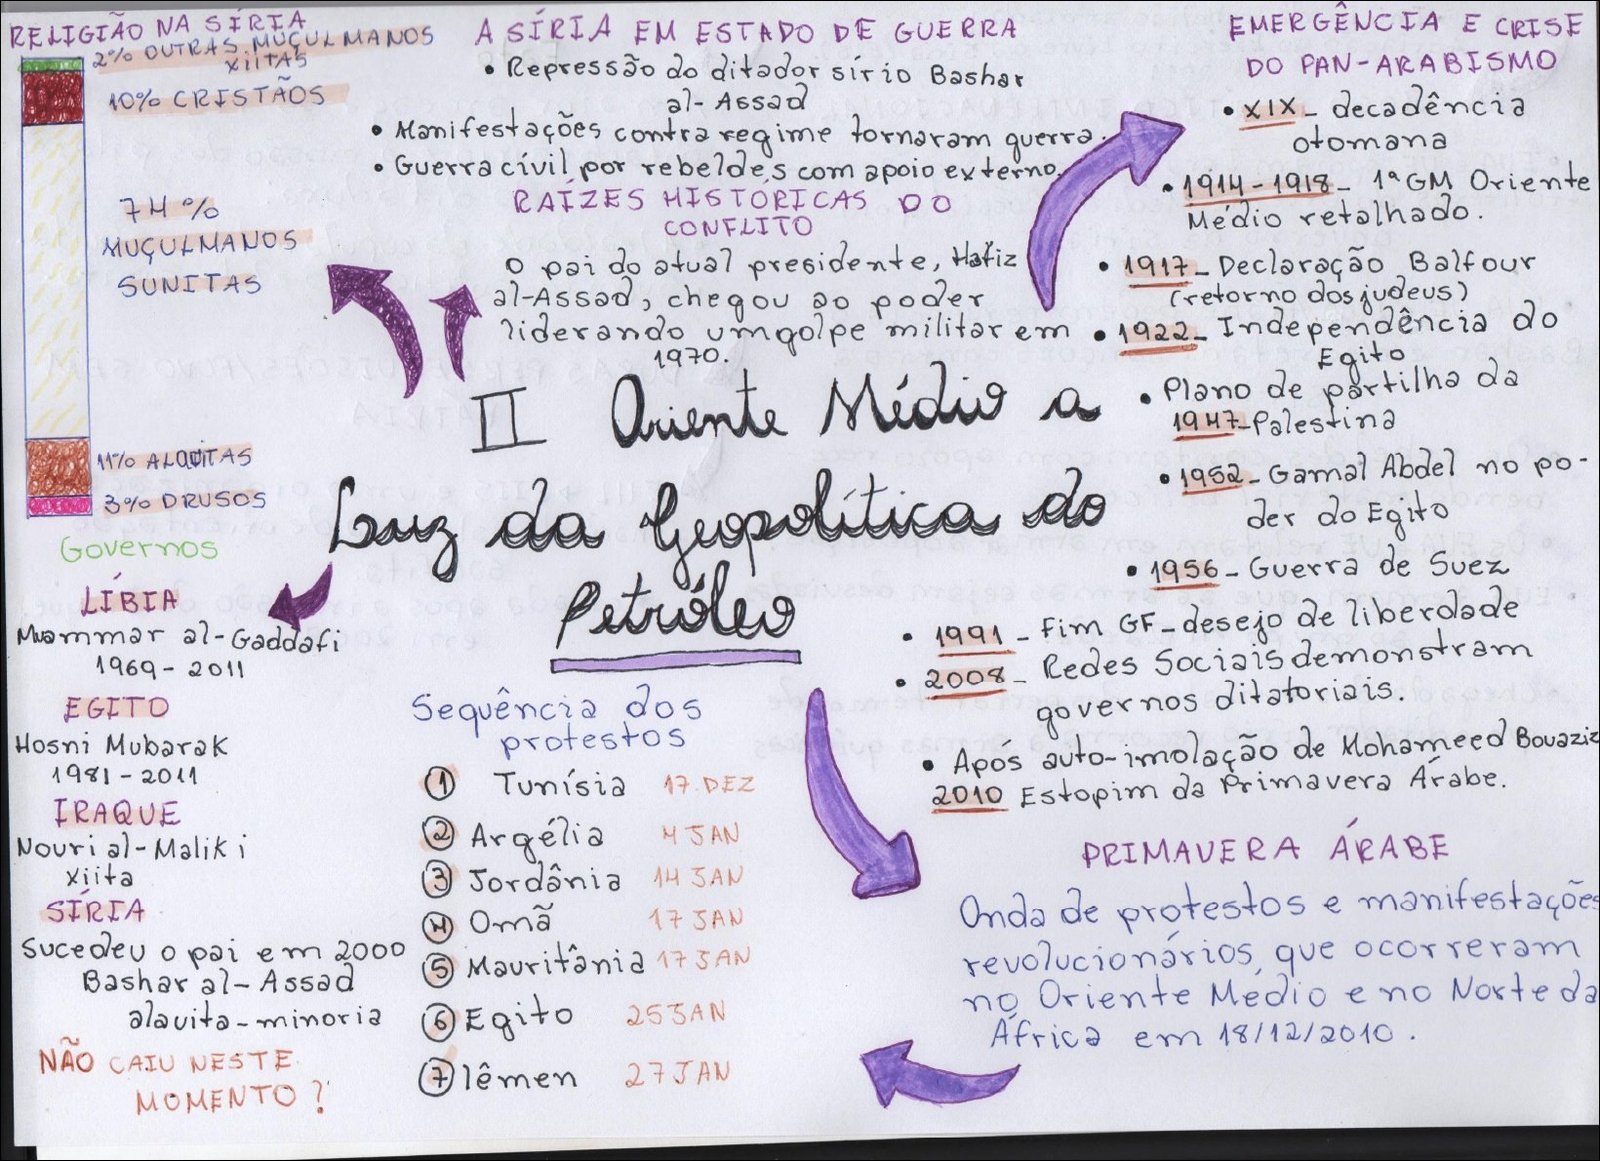 RELIGIÃO NA SÍRIA
2% OUTRAS MUÇULMANOS
XIITAS
10% CRISTÃOS
74%
MUÇULMANOS
SUNITAS
11% ALAUITAS
3% DRUSOS
Governos
LÍBIA
Muammar al-Gaddafi
1969-2011
EGITO
Hosni Mubarak
1981-2011
IRAQUE
Nouri al-Maliki
xiita
SÍRIA
Sucedeu o pai em 2000
Bashar al-Assad
alauita-minoria
NÃO CAIU NESTE
MOMENTO?
A SÍRIA EM ESTADO DE GUERRA
• Repressão do ditador sírio Bashar
al-Assad
• Manifestações contra regime tornaram guerra.
• Guerra cívil por rebeldes com apoio externo.
RAÍZES HISTÓRICAS DO
CONFLITO
O pai do atual presidente, Hafiz
al-Assad, chegou ao poder
liderando um golpe militar em
1970.
II Oriente Médio a
Luz da Geopolítica do
Petróleo
Sequência dos
protestos
1 Tunísia 17 DEZ
2 Argélia 4 JAN
3 Jordânia 14 JAN
4 Omã 17 JAN
5 Mauritânia 17 JAN
6 Egito 25 JAN
7 Iêmen 27 JAN
EMERGÊNCIA E CRISE
DO PAN-ARABISMO
• XIX - decadência
otomana
• 1914-1918 - 1ª GM Oriente
Médio retalhado.
• 1917 - Declaração Balfour
(retorno dos judeus)
• 1922 - Independência do
Egito
• Plano de partilha da
1947 - Palestina
• 1952 - Gamal Abdel no po-
der do Egito
• 1956 - Guerra de Suez
• 1991 - Fim GF - desejo de liberdade
• 2008 - Redes Sociais demonstram
governos ditatoriais.
• Após auto-imolação de Mohameed Bouaziz
2010 Estopim da Primavera Árabe.
PRIMAVERA ÁRABE
Onda de protestos e manifestações
revolucionários que ocorreram
no Oriente Médio e no Norte da
África em 18/12/2010.